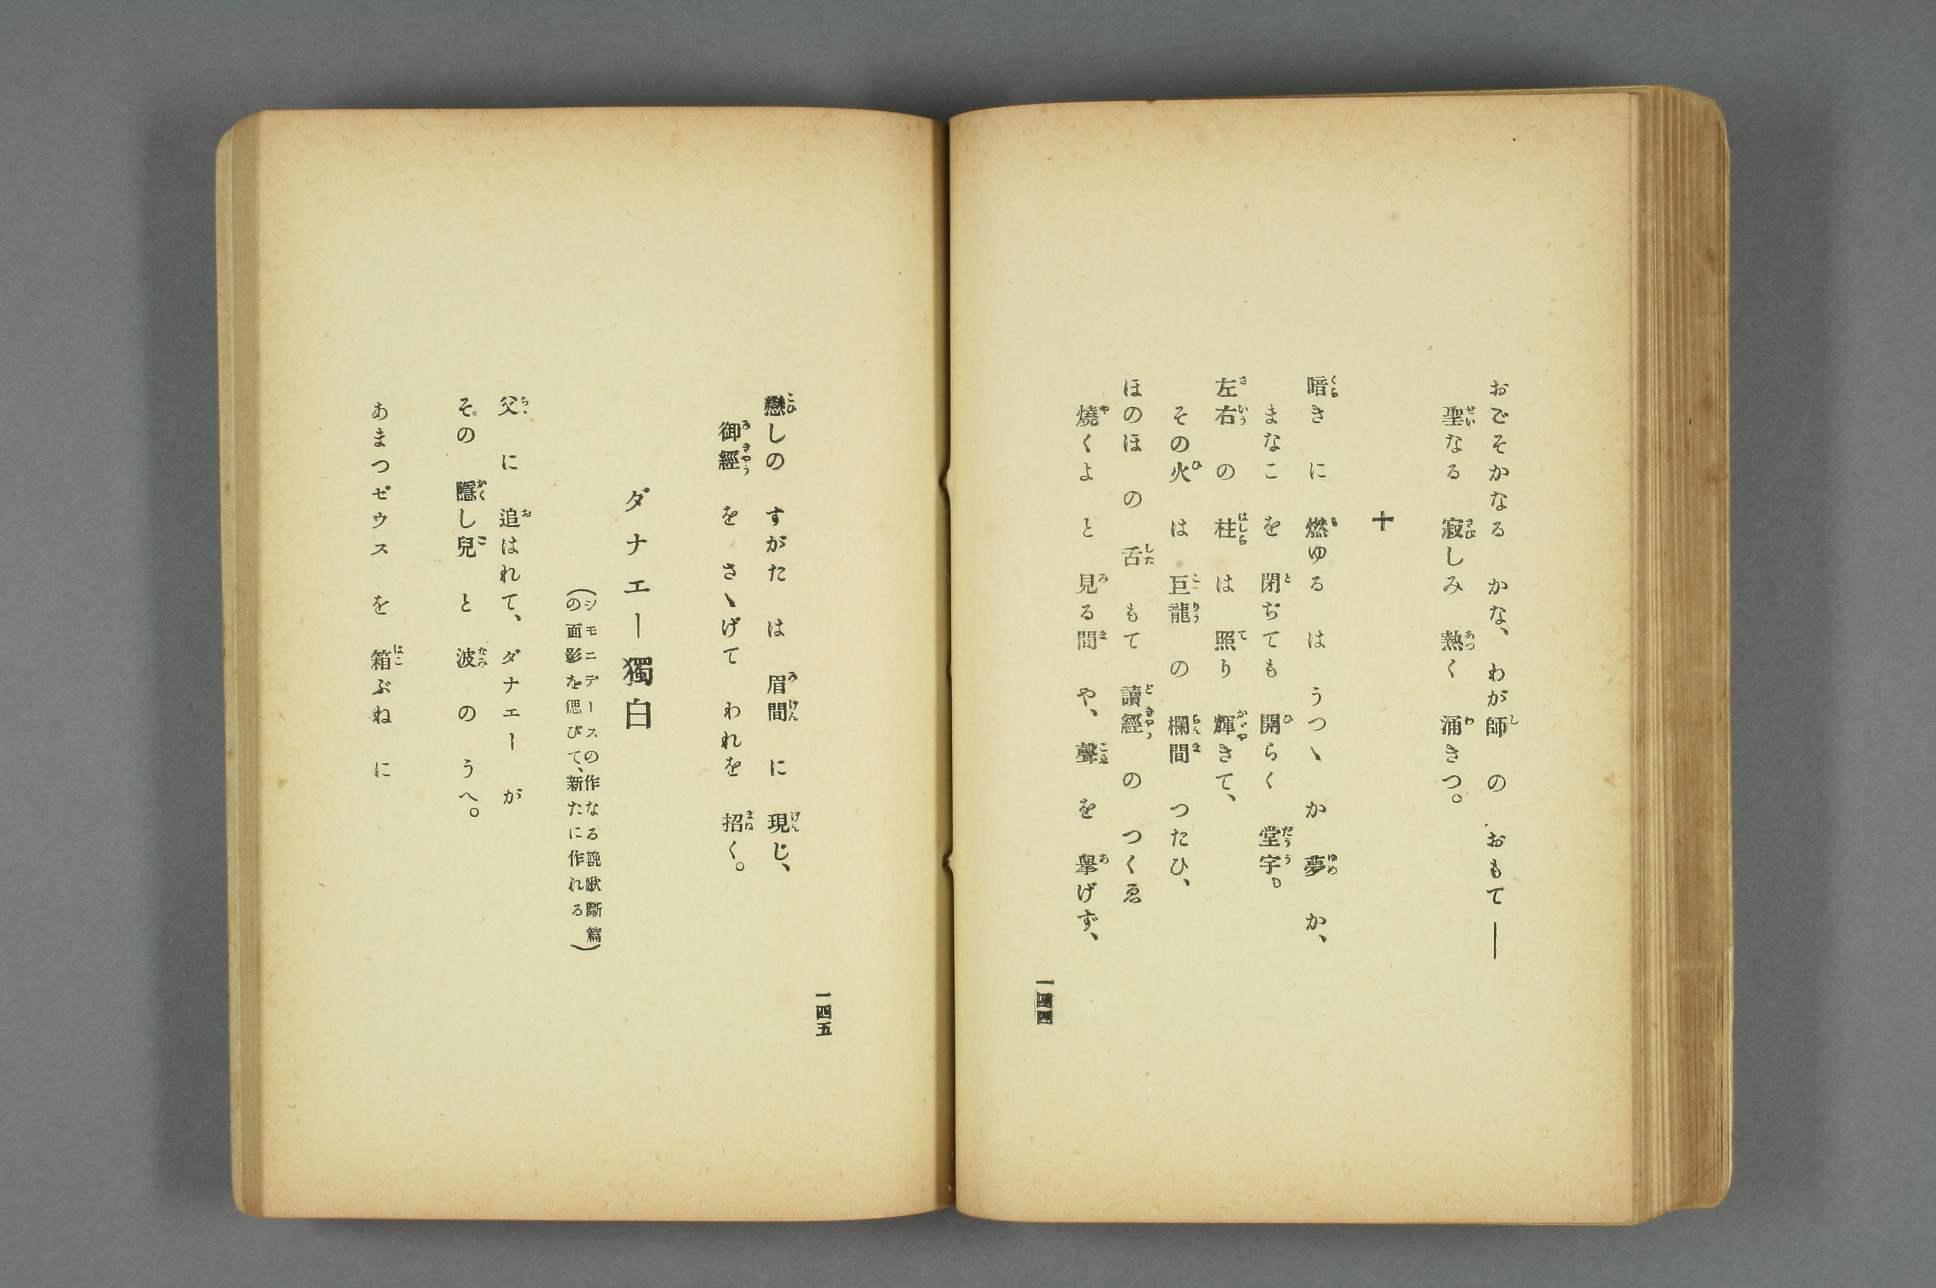 おごそかなる かな、わが師 の おもて――
聖なる 寂しみ 熱く 涌きつ。
十
暗き に 燃ゆる は うつゝ か 夢 か、
まなこ を 閉ぢても 開らく 堂宇。
左右 の 柱 は 照り 輝きて、
その火 は 巨龍 の 欄間 つたひ、
ほのほ の 舌 もて 讀經 の つくゑ
燒くよ と 見る間 や、聲 を 擧げず、
一四四
戀しの すがた は 眉間 に 現じ、
御經 を さゝげて われを 招く。
ダナエー獨白
(シモニデースの作なる輓歌斷篇
の面影を偲びて、新たに作れる)
父 に 追はれて、ダナエー が
その 隱し兒 と 波 の うへ。
あまつゼウス を 箱ぶね に
一四五